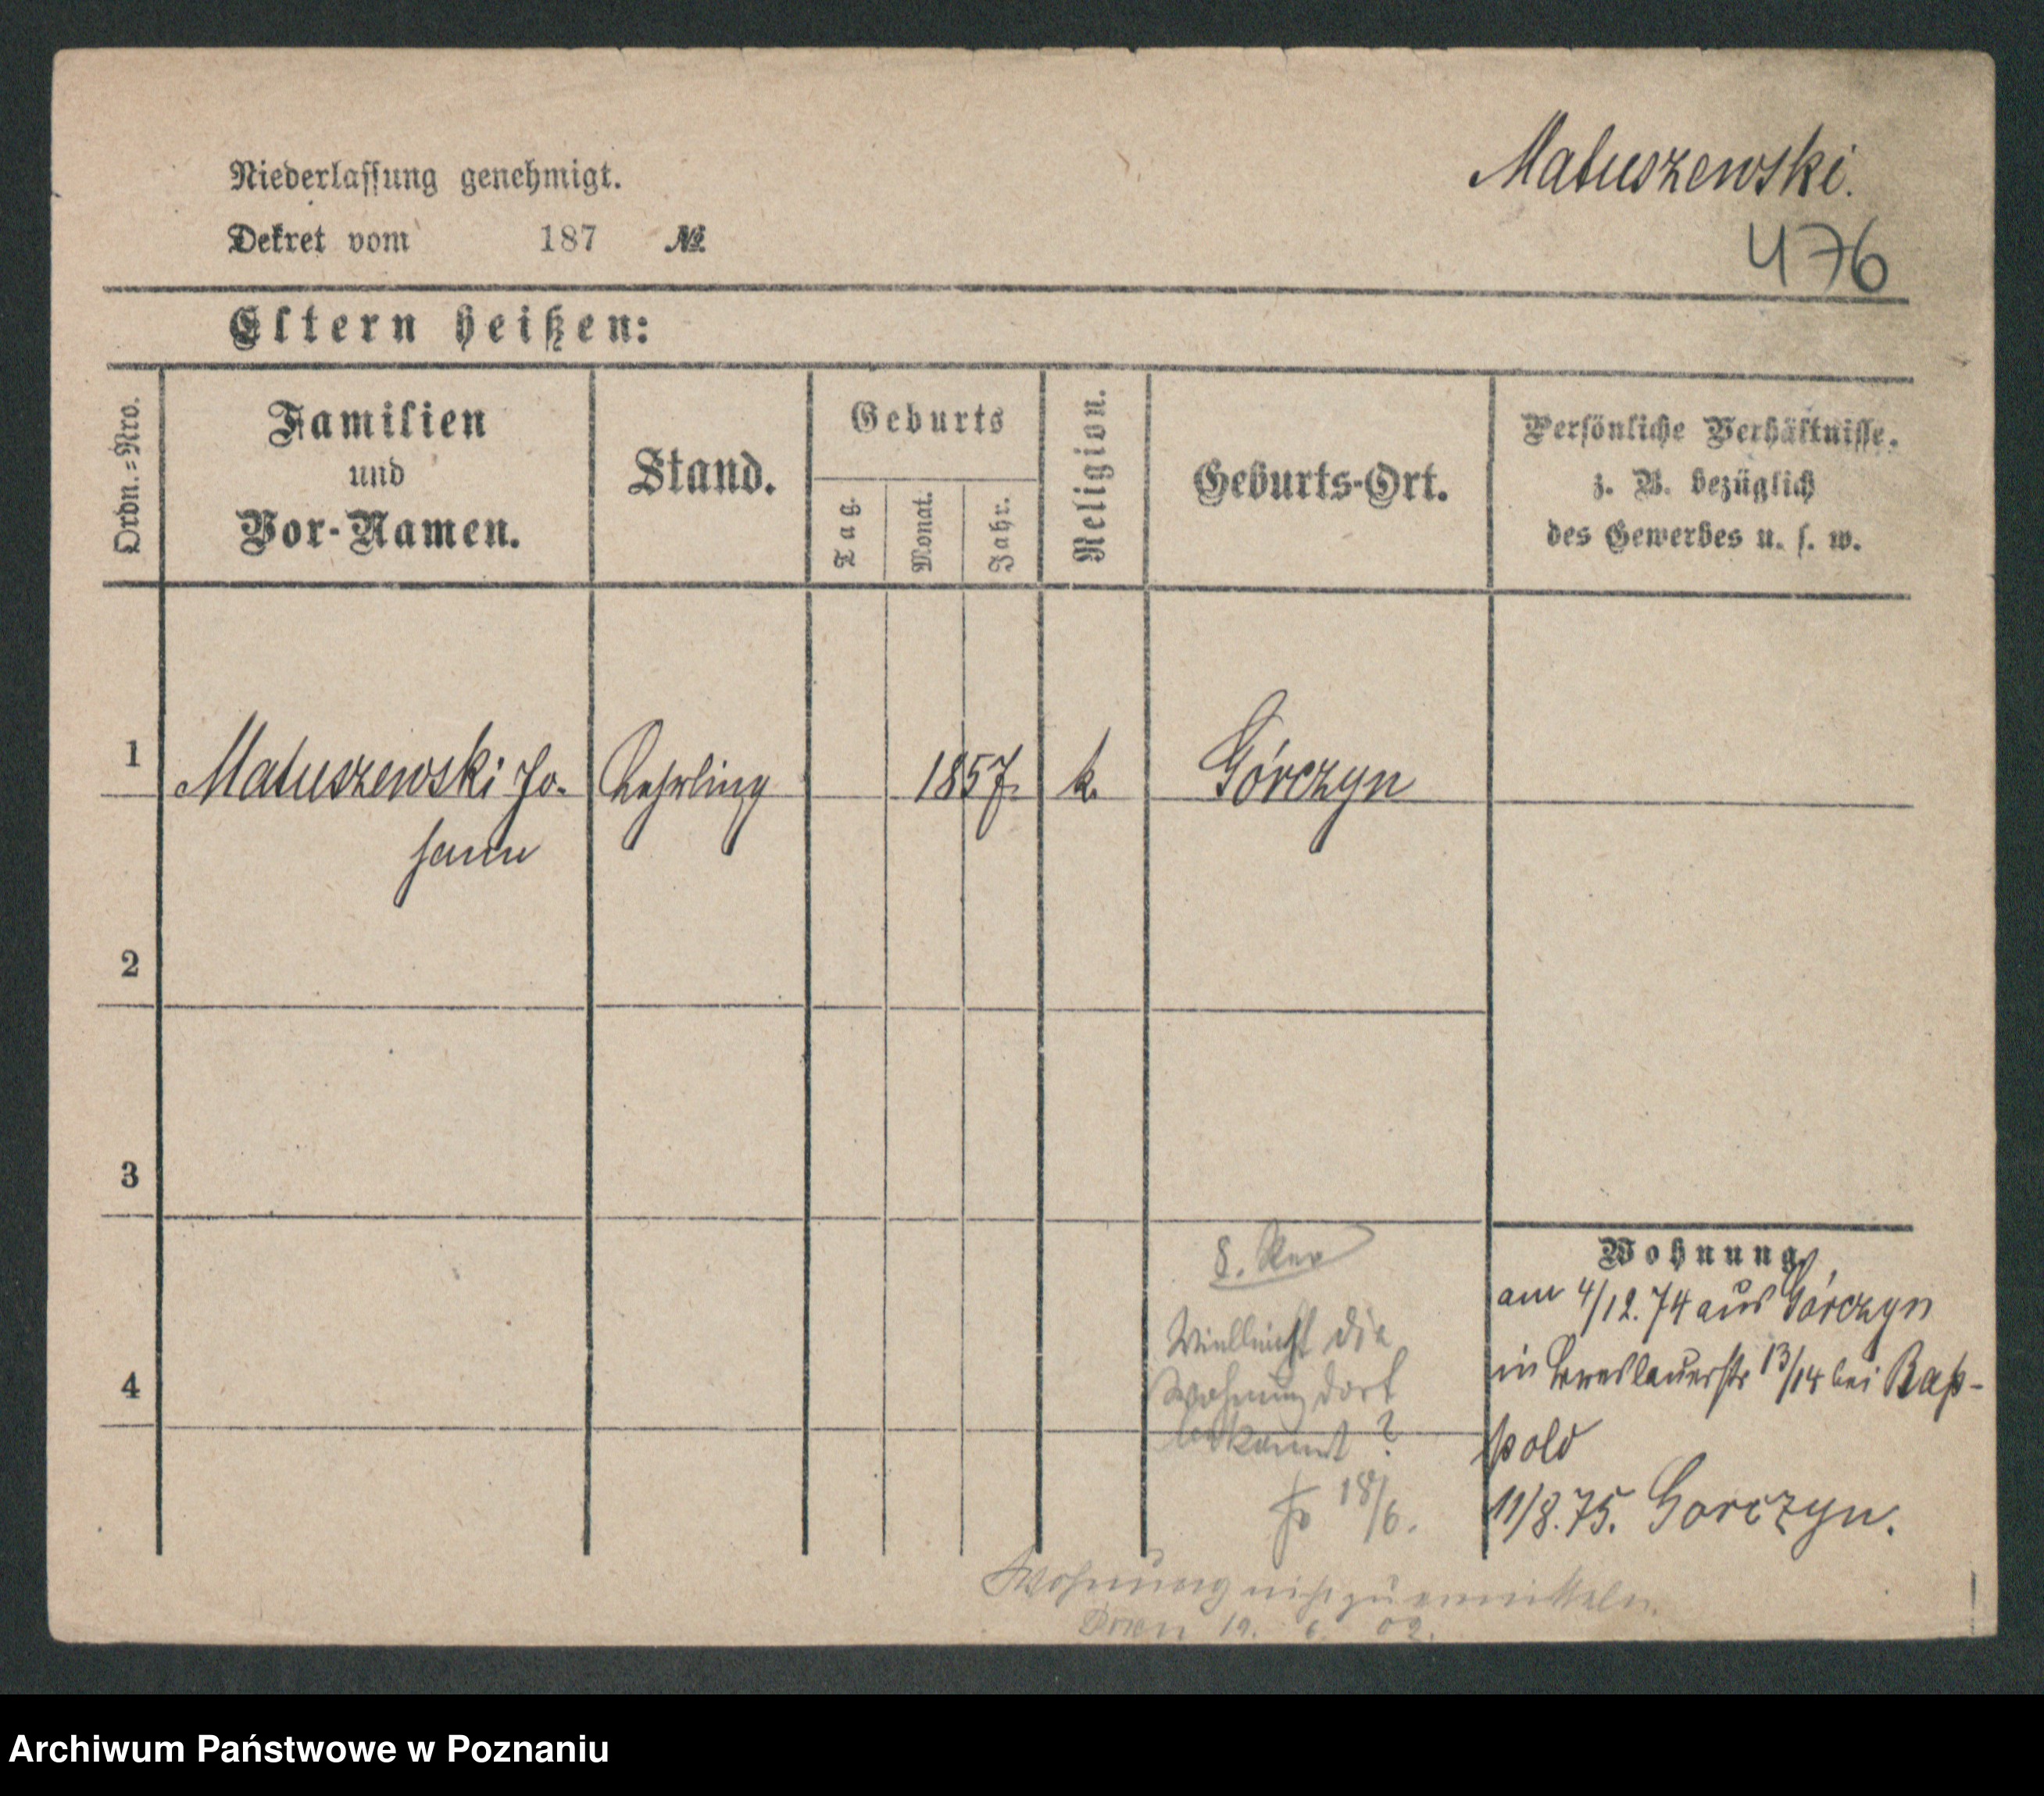 Matuszewski.
476
Niederlassung genehmigt.
Dekret vom 187 №
Eltern heißen:
Ordn.=Nro.
Familien
und
Vor-Namen.
Stand.
Geburts
Tag.
Monat.
Jahr.
Religion.
Geburts-Ort.
Persönliche Verhältnisse.
z. B. bezüglich
des Gewerbes u. s. w.
1 Matuszewski Jo- Lehrling 1857. k. Górczyn
hann
2
3
4
Vielleicht die
Wohnung dort
bekannt?
18/6.
Wohnung.
am 4/12.74 aus Górczyn
in Breslauerstr 13/14 bei Rap-
pold
11/8.75. Gorczyn.
Wohnung nicht zu ermitteln.
19. 6. 02.
Archiwum Państwowe w Poznaniu